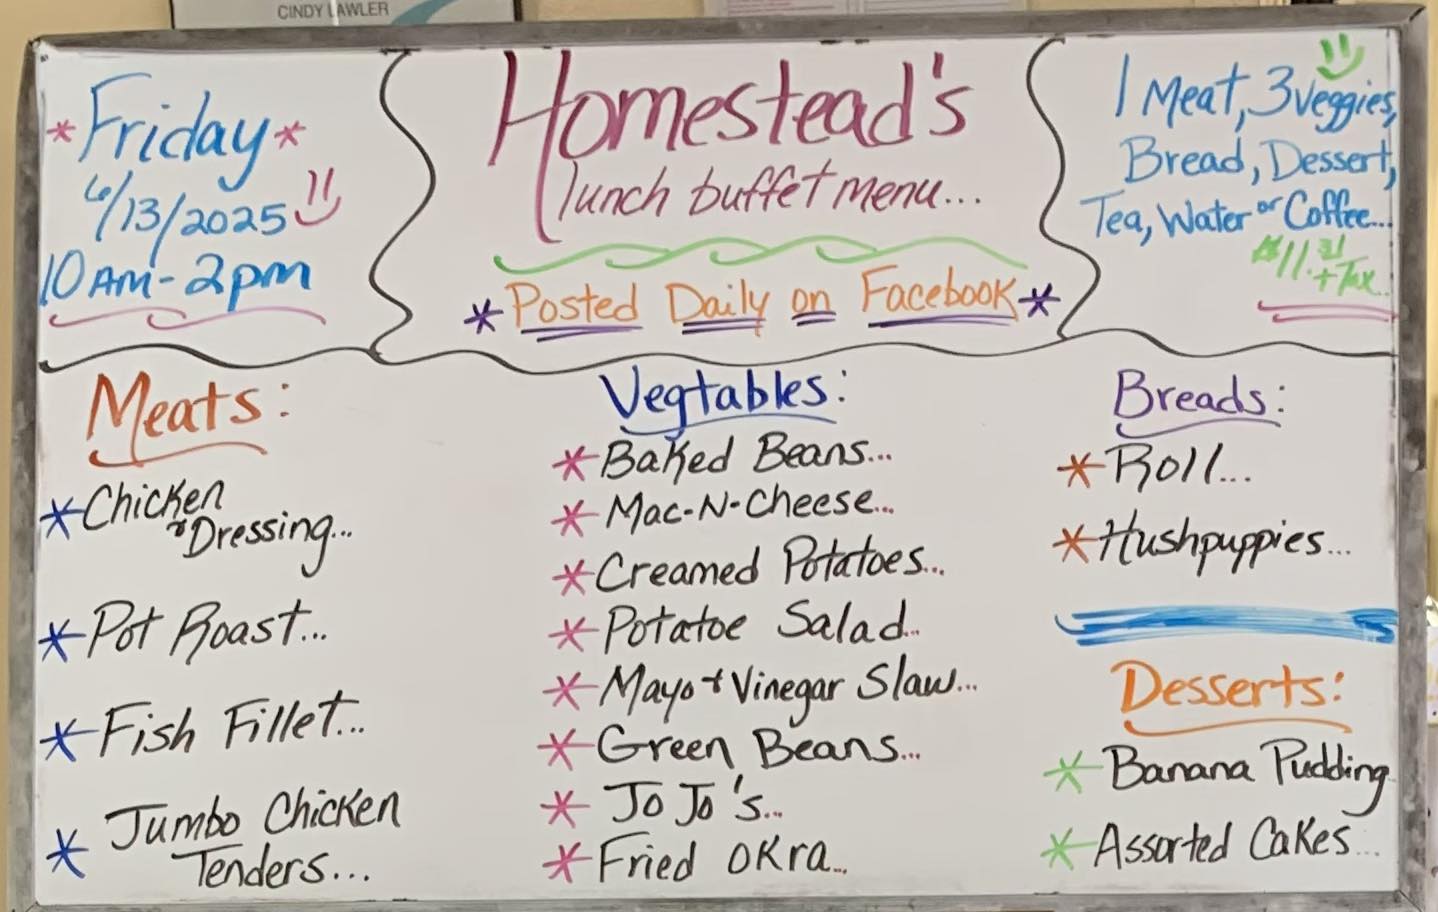 CINDY LAWLER
*Friday*
6/13/2025
10AM-2pm
Homestead's
lunch buffet menu...
*Posted Daily on Facebook*
1 Meat, 3 veggies,
Bread, Dessert,
Tea, Water or Coffee...
+ Tax
Meats:
*Chicken
& Dressing...
*Pot Roast...
*Fish Fillet...
*Jumbo Chicken
Tenders...
Vegtables:
*Baked Beans...
*Mac-N-Cheese...
*Creamed Potatoes...
*Potatoe Salad...
*Mayo & Vinegar Slaw...
*Green Beans...
*JoJo's...
*Fried Okra...
Breads:
*Roll...
*Hushpuppies...
Desserts:
*Banana Pudding
*Assorted Cakes...